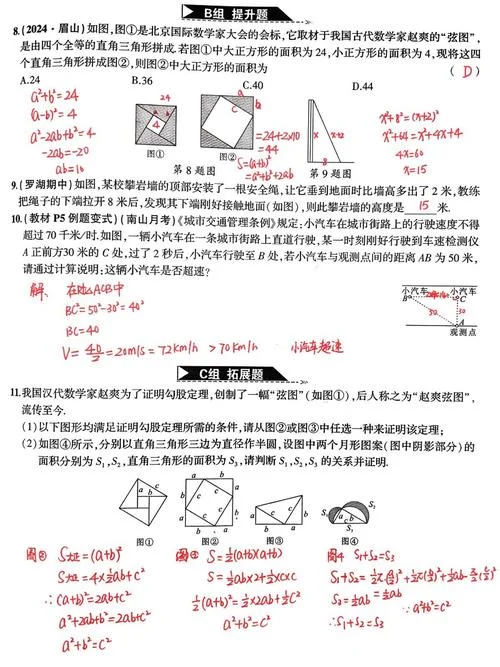 B组 提升题
8.(2024·眉山)如图,图①是北京国际数学家大会的会标,它取材于我国古代数学家赵爽的“弦图”,
是由四个全等的直角三角形拼成.若图①中大正方形的面积为24,小正方形的面积为4,现将这四
个直角三角形拼成图②,则图②中大正方形的面积为 ( D )
A.24 B.36 C.40 D.44
a²+b²=24
(a-b)²=4
a²-2ab+b²=4
-2ab=-20
ab=10
24
4
图①
a
b
C
图②
=24+2×10
=44
S=(a+b)²
=a²+b²+2ab
第8题图
x
x+2
8
第9题图
x²+8²=(x+2)²
x²+64=x²+4x+4
4x=60
x=15
9.(罗湖期中)如图,某校攀岩墙的顶部安装了一根安全绳,让它垂到地面时比墙高多出了2米,教练
把绳子的下端拉开8米后,发现其下端刚好接触地面(如图),则此攀岩墙的高度是 15 米.
10.(教材P5例题变式)(南山月考)《城市交通管理条例》规定:小汽车在城市街路上的行驶速度不得
超过70千米/时.如图,一辆小汽车在一条城市街路上直道行驶,某一时刻刚好行驶到车速检测仪
A正前方30米的C处,过了2秒后,小汽车行驶至B处,若小汽车与观测点间的距离AB为50米,
请通过计算说明:这辆小汽车是否超速?
解、在Rt△ACB中
BC²=50²-30²=40²
BC=40
V=40/2=20m/s=72km/h >70km/h 小汽车超速
小汽车 小汽车
B C
50 30
A
观测点
C组 拓展题
11.我国汉代数学家赵爽为了证明勾股定理,创制了一幅“弦图”(如图①),后人称之为“赵爽弦图”,
流传至今.
(1)以下图形均满足证明勾股定理所需的条件,请从图②或图③中任选一种来证明该定理;
(2)如图④所示,分别以直角三角形三边为直径作半圆,设图中两个月形图案(图中阴影部分)的
面积分别为S₁,S₂,直角三角形的面积为S₃,请判断S₁,S₂,S₃的关系并证明.
a b c
图①
a b c
图②
a b c
图③
S₁ S₂ S₃ a b c
图④
S大正=(a+b)²
S大正=4×½ab+c²
∴(a+b)²=2ab+c²
a²+2ab+b²=2ab+c²
a²+b²=c²
S=½(a+b)(a+b)
S=½ab×2+½×c×c
½(a+b)²=½×2ab+½c²
a²+b²=c²
图4 S₁+S₂=S₃
S₃=½ab
∵a²+b²=c²
∴S₁+S₂=S₃